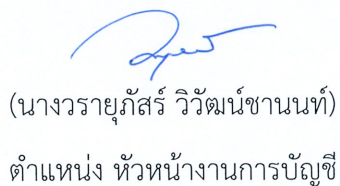 (นางวรายุภัสร์ วิวัฒน์ชานนท์)
ตำแหน่ง หัวหน้างานการบัญชี